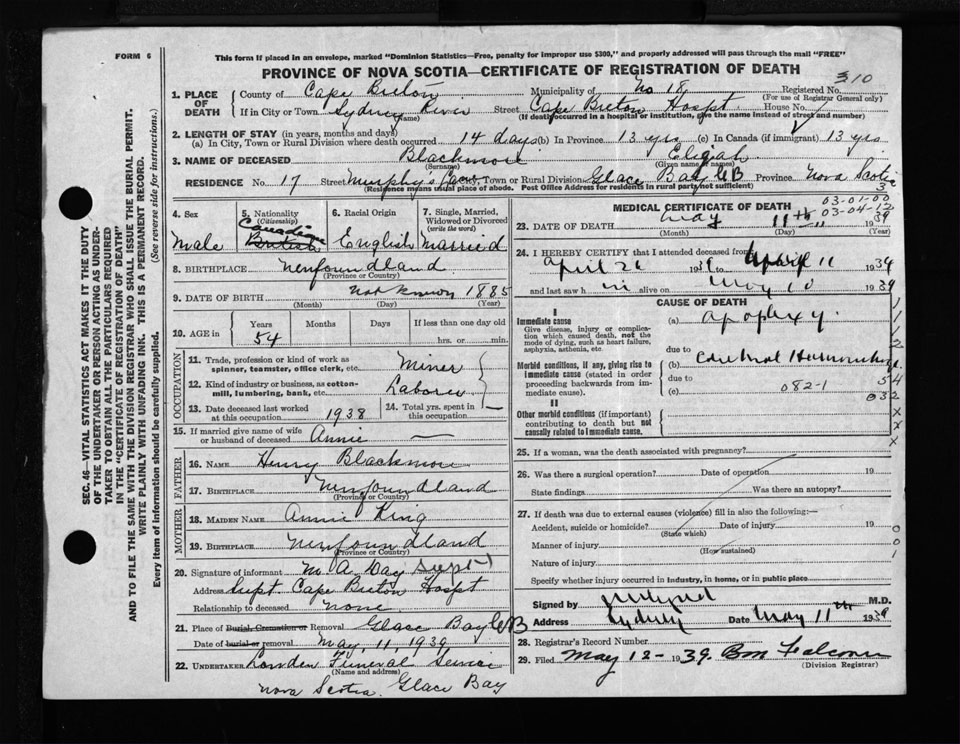 FORM 6
This form if placed in an envelope, marked "Dominion Statistics—Free, penalty for improper use $300," and properly addressed will pass through the mail "FREE"
PROVINCE OF NOVA SCOTIA—CERTIFICATE OF REGISTRATION OF DEATH
310
1. PLACE OF DEATH
County of Cape Breton Municipality of No 18 Registered No.
(For use of Registrar General only)
If in City or Town Sydney River Street Cape Breton Hospt. House No.
(Name) (If death occurred in a hospital or institution, give the name instead of street and number)
2. LENGTH OF STAY (in years, months and days)
(a) In City, Town or Rural Division where death occurred 14 days (b) In Province 13 yrs (c) In Canada (if immigrant) 13 yrs
3. NAME OF DECEASED Blackmore Elijah
(Surname) (Given name or names)
RESIDENCE No. 17 Street Murphy's City, Town or Rural Division Glace Bay CB Province Nova Scotia
(Residence means usual place of abode. Post Office Address for residents in rural parts not sufficient)
3
4. Sex
Male
5. Nationality
(Citizenship)
Canadian
British
6. Racial Origin
English
7. Single, Married, Widowed or Divorced
(write the word)
Married
8. BIRTHPLACE Newfoundland
(Province or Country)
9. DATE OF BIRTH not known 1885
(Month) (Day) (Year)
10. AGE in
Years Months Days If less than one day old
54 hrs. or min.
OCCUPATION
11. Trade, profession or kind of work as spinner, teamster, office clerk, etc. Miner
12. Kind of industry or business, as cotton-mill, lumbering, bank, etc. Laborer
13. Date deceased last worked at this occupation 1938
14. Total yrs. spent in this occupation
15. If married give name of wife or husband of deceased Annie
FATHER
16. Name Henry Blackmore
17. Birthplace Newfoundland
(Province or Country)
MOTHER
18. Maiden Name Annie King
19. Birthplace Newfoundland
(Province or Country)
20. Signature of informant M A Day Supt)
Address Supt. Cape Breton Hospt
Relationship to deceased none
21. Place of Burial, Cremation or Removal Glace Bay CB
Date of burial or removal May, 11, 1939
22. UNDERTAKER Funeral Service
(Name and address)
Nova Scotia. Glace Bay
MEDICAL CERTIFICATE OF DEATH
03-01-00
03-04-12
23. DATE OF DEATH May 11th 1939
(Month) (Day) (Year)
24. I HEREBY CERTIFY that I attended deceased from
April 26 19 to 11 1939
and last saw h im alive on May 10 1939
CAUSE OF DEATH
I
Immediate cause
Give disease, injury or complication which caused death, not the mode of dying, such as heart failure, asphyxia, asthenia, etc.
(a) apoplexy.
due to
Morbid conditions, if any, giving rise to immediate cause (stated in order proceeding backwards from immediate cause).
(b) Cerebral Hemorrhage
due to
(c) 082-1
II
Other morbid conditions (if important) contributing to death but not causally related to immediate cause.
1
1
1
2
54
032
X
X
X
25. If a woman, was the death associated with pregnancy?
26. Was there a surgical operation? Date of operation 19
State findings Was there an autopsy?
27. If death was due to external causes (violence) fill in also the following:—
Accident, suicide or homicide? Date of injury 19
(State which)
Manner of injury
(How sustained)
Nature of injury
Specify whether injury occurred in industry, in home, or in public place
0
0
1
Signed by M.D.
Address Sydney Date May 11th 1939
28. Registrar's Record Number
29. Filed May 12- 1939. Falconer
(Division Registrar)
SEC. 46—VITAL STATISTICS ACT MAKES IT THE DUTY
OF THE UNDERTAKER OR PERSON ACTING AS UNDER-
TAKER TO OBTAIN ALL THE PARTICULARS REQUIRED
IN THE "CERTIFICATE OF REGISTRATION OF DEATH"
AND TO FILE THE SAME WITH THE DIVISION REGISTRAR WHO SHALL ISSUE THE BURIAL PERMIT.
WRITE PLAINLY WITH UNFADING INK. THIS IS A PERMANENT RECORD.
Every item of information should be carefully supplied. (See reverse side for instructions.)